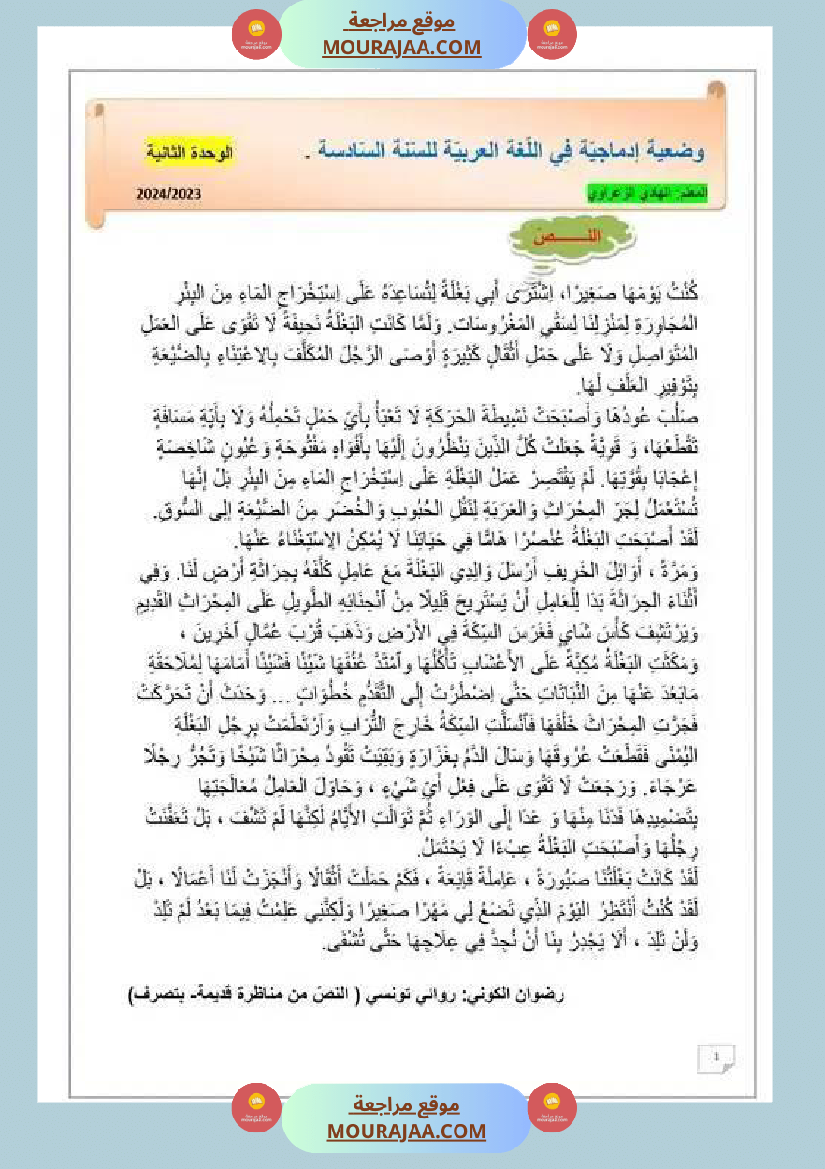 موقع مراجعة
MOURAJAA.COM
وضعية إدماجيّة في اللّغة العربيّة للسّنة السّادسة .
الوحدة الثانية
المعلم: الهادي الزعراوي
2024/2023
النـــــصّ
كُنْتُ يَوْمَهَا صَغِيرًا، اِشْتَرَى أَبِي بَغْلَةً لِتُسَاعِدَهُ عَلَى اِسْتِخْرَاجِ المَاءِ مِنَ البِئْرِ
المُجَاوِرَةِ لِمَنْزِلِنَا لِسَقْيِ المَغْرُوسَات. وَلَمَّا كَانَتِ البَغْلَةُ نَحِيفَةً لَا تَقْوَى عَلَى العَمَلِ
المُتَوَاصِلِ وَلَا عَلَى حَمْلِ أَثْقَالٍ كَثِيرَةٍ أَوْصَى الرَّجُلَ المُكَلَّفَ بِالاِعْتِنَاءِ بِالضَّيْعَةِ
بِتَوْفِيرِ العَلَفِ لَهَا.
صَلُبَ عُودُهَا وَأَصْبَحَتْ نَشِيطَةَ الحَرَكَةِ لَا تَعْبَأُ بِأَيِّ حَمْلٍ تَحْمِلُهُ وَلَا بِأَيَّةِ مَسَافَةٍ
تَقْطَعُهَا، وَ قَوِيَّةً جَعَلَتْ كُلَّ الَّذِينَ يَنْظُرُونَ إِلَيْهَا بِأَفْوَاهٍ مَفْتُوحَةٍ وَعُيُونٍ شَاخِصَةٍ
إِعْجَابًا بِقُوَّتِهَا. لَمْ يَقْتَصِرْ عَمَلُ البَغْلَةِ عَلَى اِسْتِخْرَاجِ المَاءِ مِنَ البِئْرِ بَلْ إِنَّهَا
تُسْتَعْمَلُ لِجَرِّ المِحْرَاثِ وَالعَرَبَةِ لِنَقْلِ الحُبُوبِ وَالخُضَرِ مِنَ الضَّيْعَةِ إِلى السُّوقِ.
لَقَدْ أَصْبَحَتِ البَغْلَةُ عُنْصُرًا هَامًّا فِي حَيَاتِنَا لَا يُمْكِنُ الاِسْتِغْنَاءُ عَنْهَا.
وَمَرَّةً ، أَوَائِلَ الخَرِيفِ أَرْسَلَ وَالِدِي البَغْلَةَ مَعَ عَامِلٍ كَلَّفَهُ بِحِرَاثَةِ أَرْضٍ لَنَا. وَفِي
أَثْنَاءِ الحِرَاثَةِ بَدَا لِلْعَامِلِ أَنْ يَسْتَرِيحَ قَلِيلًا مِنْ اَنْحِنَائِهِ الطَّوِيلِ عَلَى المِحْرَاثِ القَدِيمِ
وَيَرْتَشِفَ كَأْسَ شَايٍ فَغَرَسَ السِّكَّةَ فِي الأَرْضِ وَذَهَبَ قُرْبَ عُمَّالٍ آخَرِينَ ،
وَمَكَثَتِ البَغْلَةُ مُكِبَّةً عَلَى الأَعْشَابِ تَأْكُلُهَا وَاَمْتَدَّ عُنُقُهَا شَيْئًا فَشَيْئًا أَمَامَهَا لِمُلَاحَقَةِ
مَابَعُدَ عَنْهَا مِنَ النَّبَاتَاتِ حَتَّى اِضْطُرَّتْ إِلَى التَّقَدُّمِ خُطُوَاتٍ ... وَحَدَثَ أَنْ تَحَرَّكَتْ
فَجَرَّتِ المِحْرَاثَ خَلْفَهَا فَاَنْسَلَّتِ السِّكَّةُ خَارِجَ التُّرَابِ وَاَرْتَطَمَتْ بِرِجْلِ البَغْلَةِ
اليُمْنَى فَقَطَعَتْ عُرُوقَهَا وَسَالَ الدَّمُ بِغَزَارَةٍ وَبَقِيَتْ تَقُودُ مِحْرَاثًا شَبَحًا وَتَجُرُّ رِجْلًا
عَرْجَاءَ. وَرَجَعَتْ لَا تَقْوَى عَلَى فِعْلِ أَيِّ شَيْءٍ ، وَحَاوَلَ العَامِلُ مُعَالَجَتِهَا
بِتَضْمِيدِهَا فَدَنَا مِنْهَا وَ عَدَا إِلَى الوَرَاءِ ثُمَّ تَوَالَتِ الأَيَّامُ لَكِنَّهَا لَمْ تَشْفَ ، بَلْ تَعَفَّنَتْ
رِجْلُهَا وَأَصْبَحَتِ البَغْلَةُ عِبْءًا لَا يُحْتَمَلُ.
لَقَدْ كَانَتْ بَغْلَتُنَا صَبُورَةً ، عَامِلَةً قَانِعَةً ، فَكَمْ حَمَلَتْ أَثْقَالًا وَأَنْجَزَتْ لَنَا أَعْمَالًا ، بَلْ
لَقَدْ كُنْتُ أَنْتَظِرُ اليَوْمَ الذِّي تَضَعُ لِي مَهْرًا صَغِيرًا وَلَكِنَّنِي عَلِمْتُ فِيمَا بَعْدُ لَمْ تَلِدْ
وَلَنْ تَلِدَ ، أَلَا يَجْدِرُ بِنَا أَنْ نُجِدَّ فِي عِلَاجِهَا حَتَّى تُشْفَى.
رضوان الكوني: روائي تونسي ( النصّ من مناظرة قديمة- بتصرف)
1
موقع مراجعة
MOURAJAA.COM